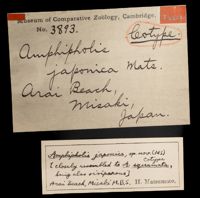 Museum of Comparative Zoology, Cambridge,
No. 3893. Cotype.
Amphipholis
japonica Mats.
Arai Beach,
Misaki,
Japan.
Amphipholis japonica, sp. nov. (MS)
cotype
(closely resembled to A. squamata,
being also viviparous)
Arai beach, Misaki M.B.S. H. Matsumoto.